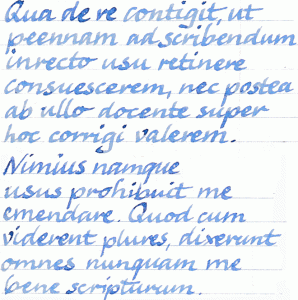 Qua de re contigit, ut
peennam ad scribendum
inrecto usu retinere
consuescerem, nec postea
ab ullo docente super
hoc corrigi valerem.
Nimius namque
usus prohibuit me
emendare. Quod cum
viderent plures, dixerunt
omnes nunquam me
bene scripturum.